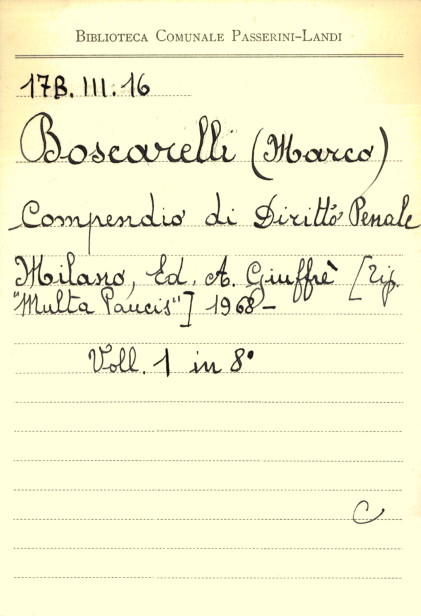 BIBLIOTECA COMUNALE PASSERINI-LANDI
17B. III. 16
Boscarelli (Marco)
Compendio di Diritto Penale
Milano, Ed. A. Giuffrè [Tip.
"Multa Paucis"] 1968-
Voll. 1 in 8°
C